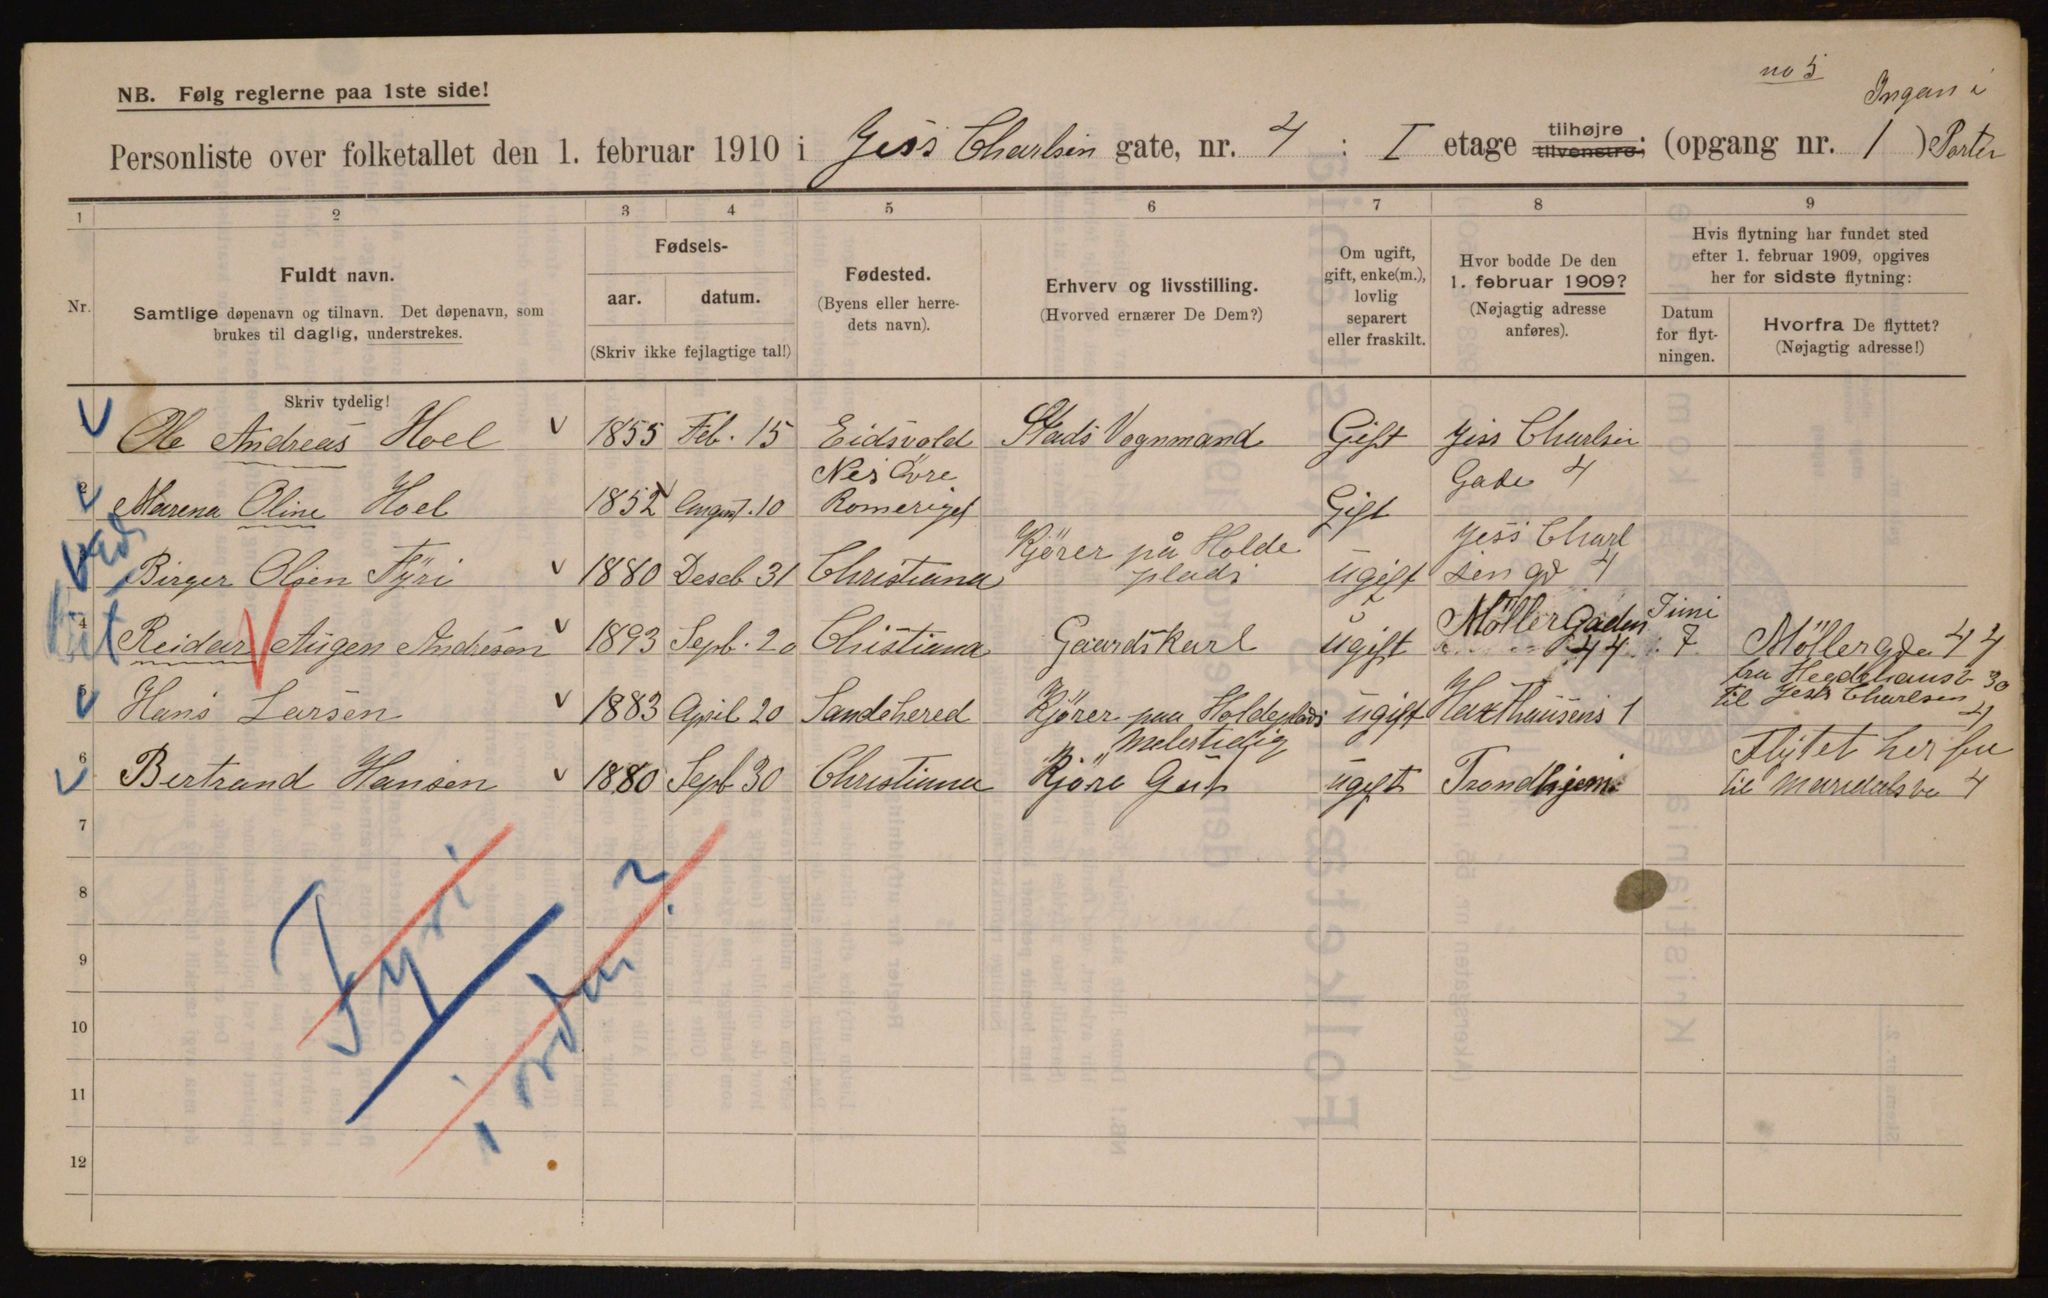 no 5
NB. Følg reglerne paa 1ste side!
Ingan i
Personliste over folketallet den 1. februar 1910 i Jess Charlsen gate, nr. 4 : I etage tilhøjre tilvenstre; (opgang nr. 1) Porten
1 2 3 4 5 6 7 8 9
Nr.
Fuldt navn.
Samtlige døpenavn og tilnavn. Det døpenavn, som
brukes til daglig, understrekes.
Fødsels-
aar. datum.
(Skriv ikke fejlagtige tal!)
Fødested.
(Byens eller herre-
dets navn).
Erhverv og livsstilling.
(Hvorved ernærer De Dem?)
Om ugift,
gift, enke(m.),
lovlig
separert
eller fraskilt.
Hvor bodde De den
1. februar 1909?
(Nøjagtig adresse
anføres).
Hvis flytning har fundet sted
efter 1. februar 1909, opgives
her for sidste flytning:
Datum
for flyt-
ningen.
Hvorfra De flyttet?
(Nøjagtig adresse!)
Skriv tydelig!
Ole Andreas Hoel 1855 Feb. 15 Eidsvold Stads Vognmand Gift Jess Charlsen
Gade 4
2 Marena Oline Hoel 1852 August. 10 Nes Övre
Romeriget Gift
3 Birger Olsen Fyri 1880 Deseb 31 Christiana Kjörer på Holde
plads ugift Jess Charl
sen gd 4
4 Reidar Augen Andresen 1893 Sepb. 20 Christiana Gaardskarl ugift Möller Gaden
44 Juni
7 Möllergda 44
5 Hans Larsen 1883 April 20 Sandehered Kjörer paa Holdeplads ugift Haxthausens 1 fra Hegdehausv 30
til Jess Charlsen
4
6 Bertrand Hansen 1880 Sepb 30 Christiana Kjöre Gut ugift Trondhjem Flytet her fra
til Maridalsve 4
7
8
9
10
11
12
Fyri